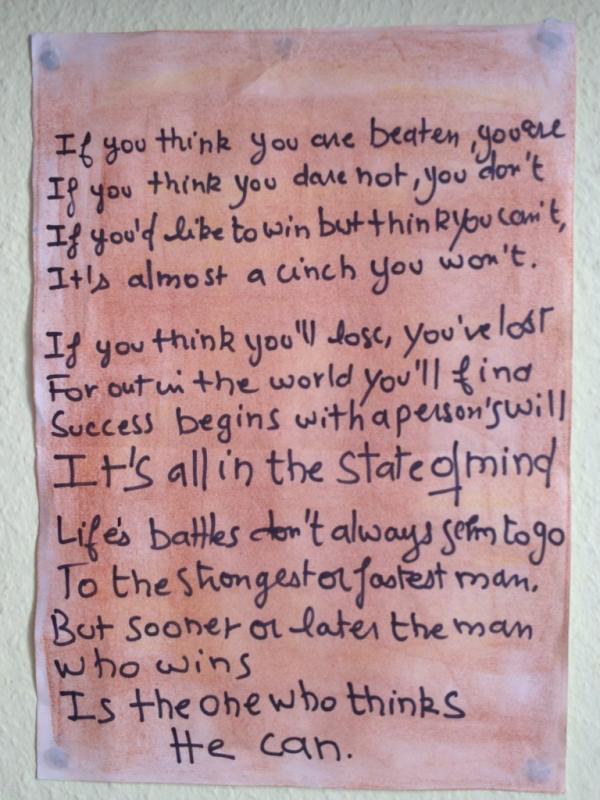 If you think you are beaten, you are
If you think you dare not, you don't
If you'd like to win but think you can't,
It's almost a cinch you won't.
If you think you'll lose, you've lost
For out in the world you'll find
Success begins with a person's will
It's all in the state of mind
Life's battles don't always seem to go
To the strongest or fastest man.
But sooner or later the man
who wins
Is the one who thinks
He can.